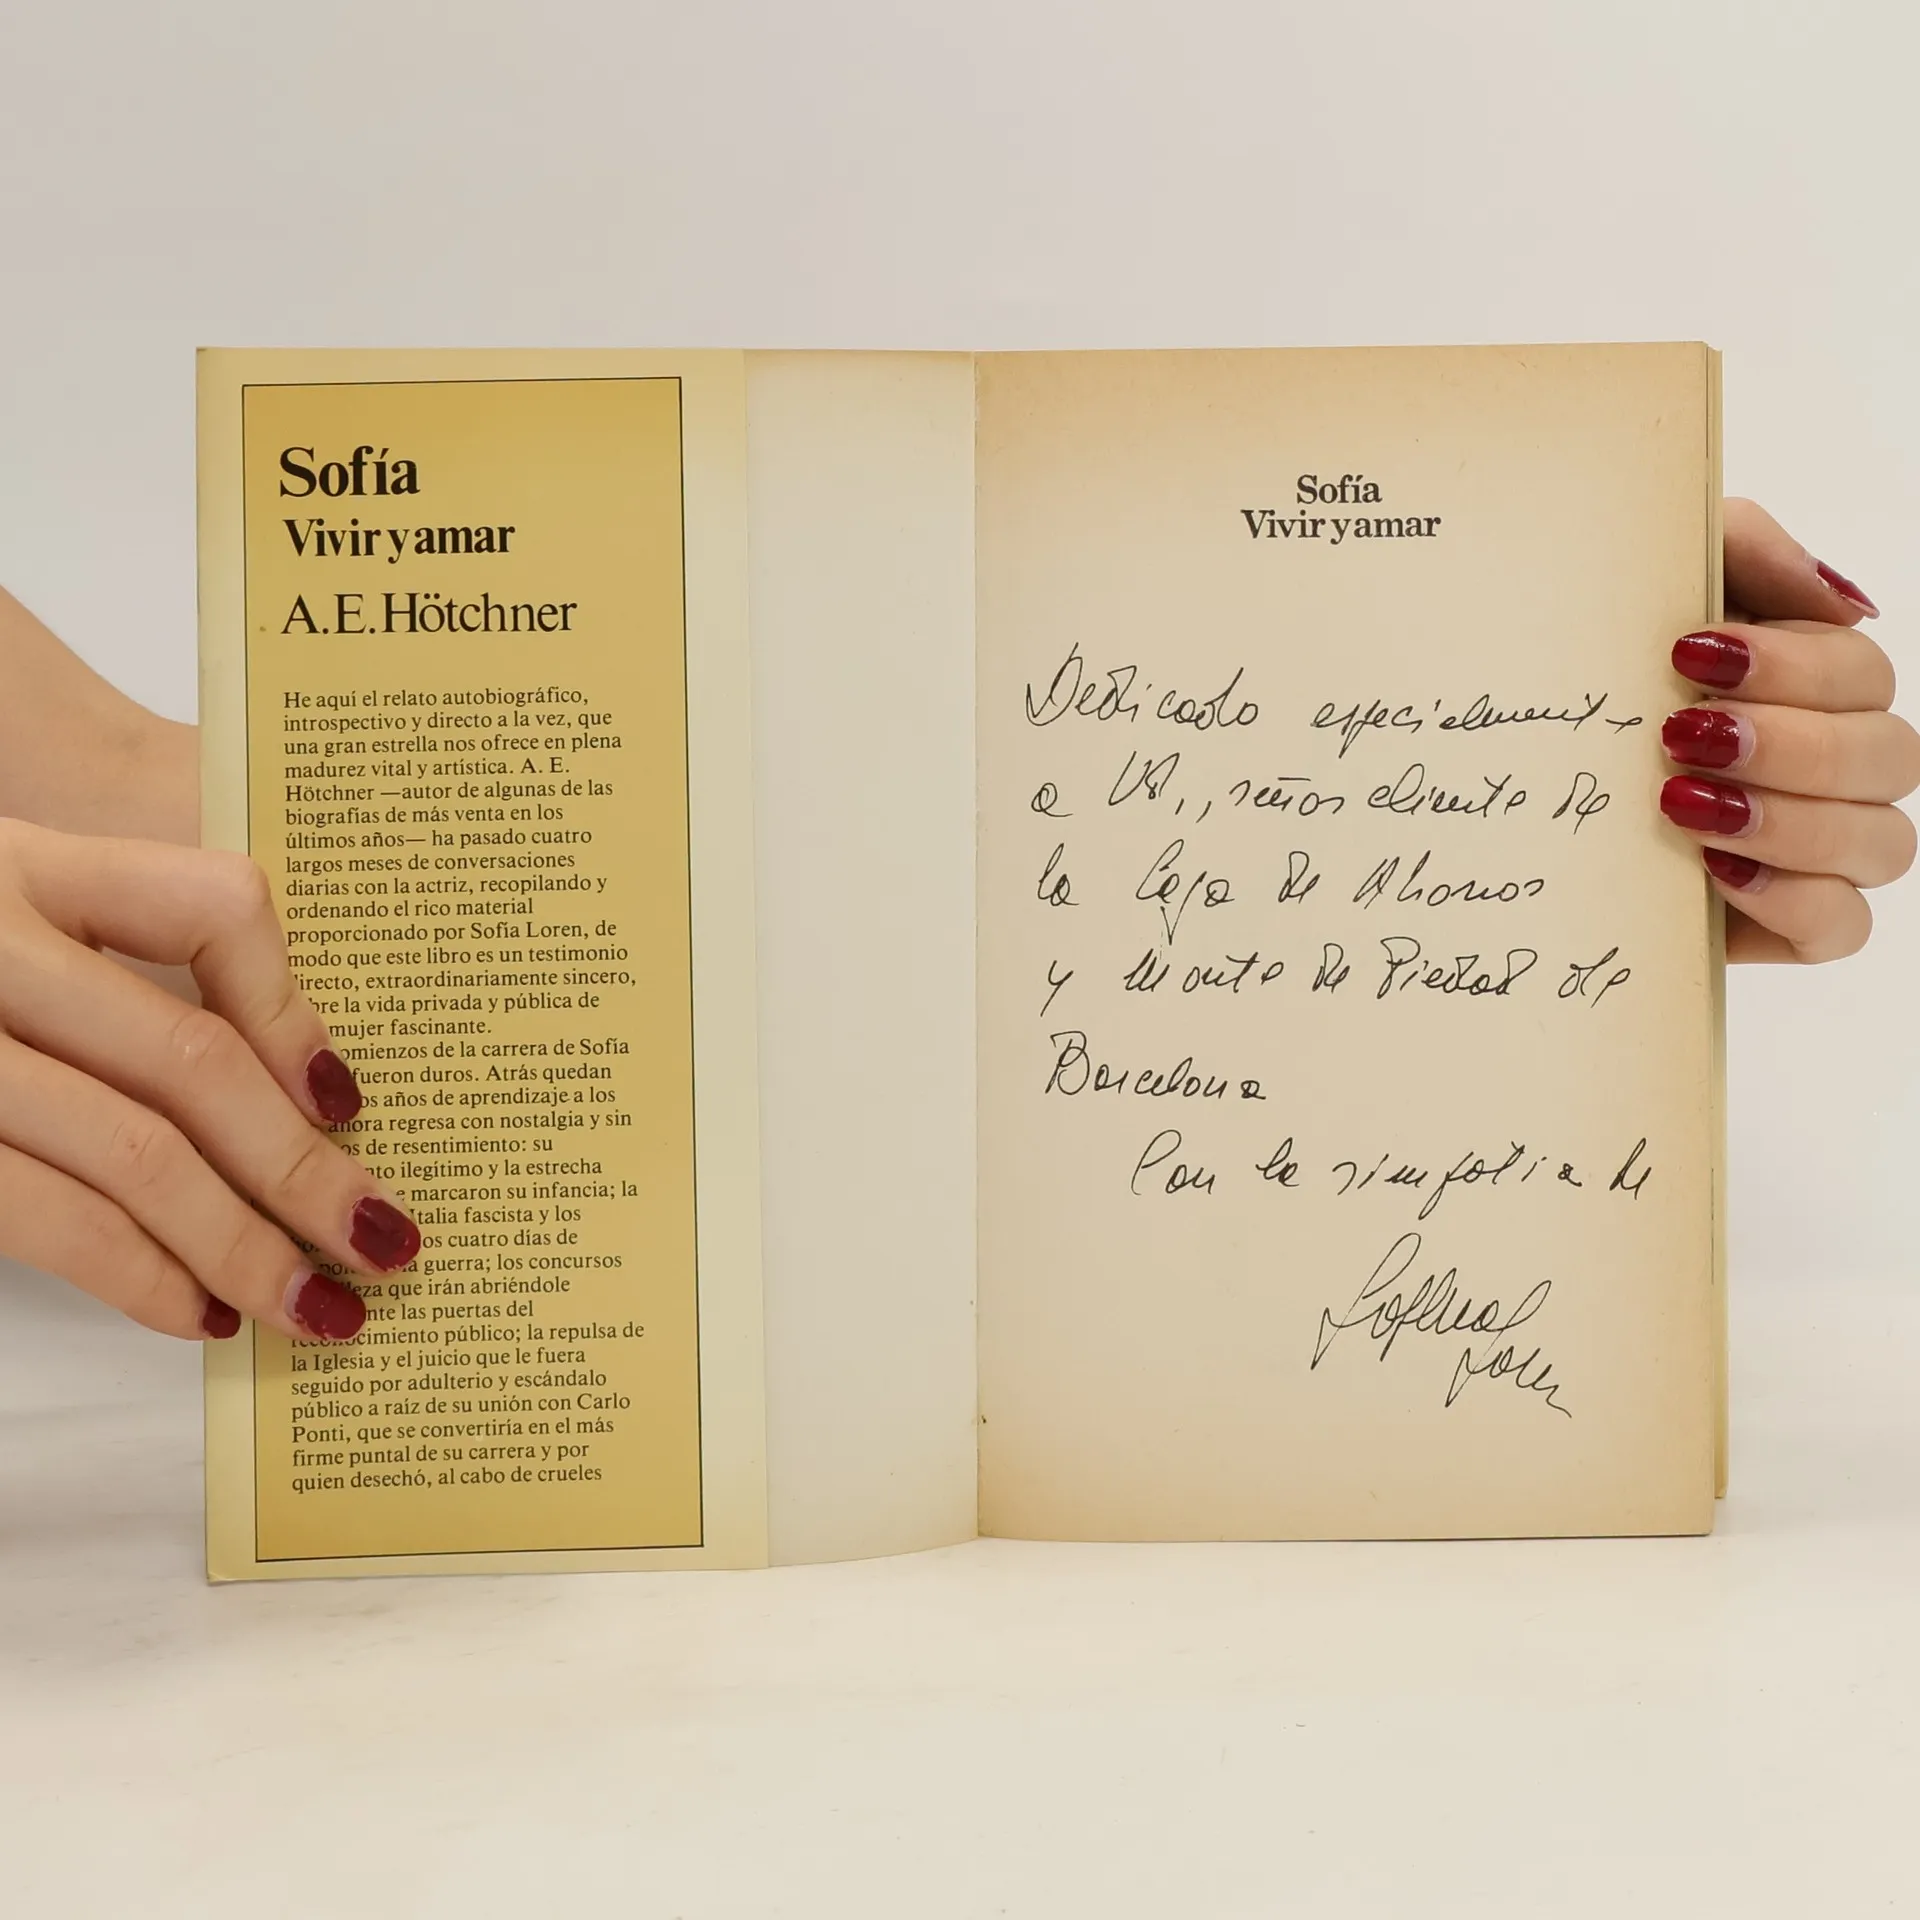 Sofía
Vivir y amar
A. E. Hötchner
He aquí el relato autobiográfico,
introspectivo y directo a la vez, que
una gran estrella nos ofrece en plena
madurez vital y artística. A. E.
Hötchner —autor de algunas de las
biografías de más venta en los
últimos años— ha pasado cuatro
largos meses de conversaciones
diarias con la actriz, recopilando y
ordenando el rico material
proporcionado por Sofía Loren, de
modo que este libro es un testimonio
directo, extraordinariamente sincero,
bre la vida privada y pública de
mujer fascinante.
omienzos de la carrera de Sofía
fueron duros. Atrás quedan
os años de aprendizaje a los
ahora regresa con nostalgia y sin
os de resentimiento: su
nto ilegítimo y la estrecha
e marcaron su infancia; la
Italia fascista y los
os cuatro días de
la guerra; los concursos
leza que irán abriéndole
nte las puertas del
reconocimiento público; la repulsa de
la Iglesia y el juicio que le fuera
seguido por adulterio y escándalo
público a raíz de su unión con Carlo
Ponti, que se convertiría en el más
firme puntal de su carrera y por
quien desechó, al cabo de crueles
Sofía
Vivir y amar
Dedicado especialmente
a Vd., señor cliente de
la Caja de Ahorros
y Monte de Piedad de
Barcelona
Con la simpatia de
Sophia
Loren